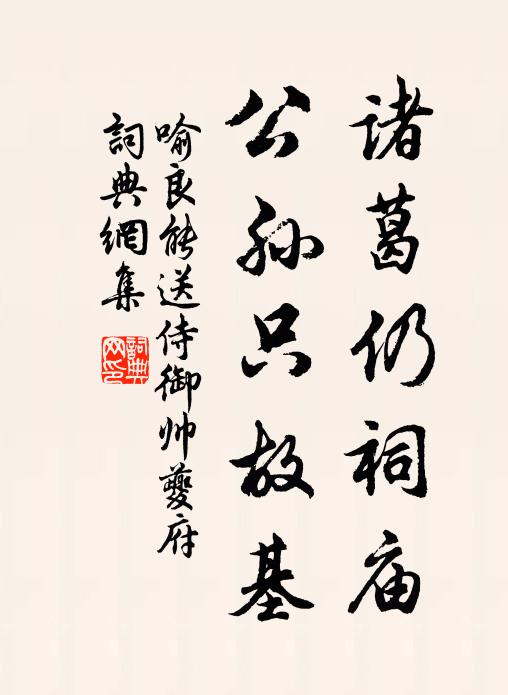 诸葛仍祠庙
公孙只故基
喻良能送侍御帅夔府
詞典網集
詞典网印